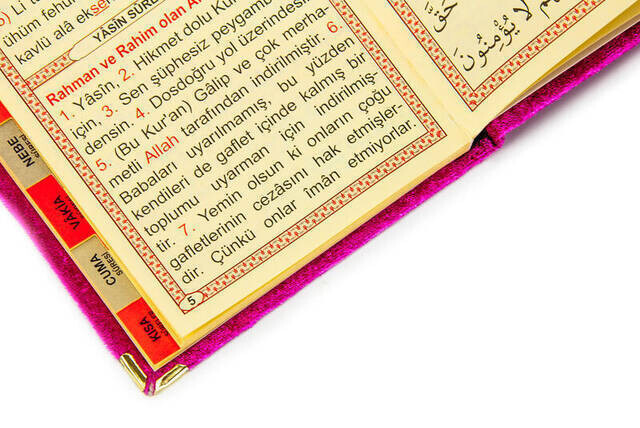 ühüm fehüm
kavlü alâ ekseri
YÂSİN SÛR
Rahman ve Rahim olan Al
1. Yâsîn. 2. Hikmet dolu Kur
için, 3. Sen şüphesiz peygam
densin. 4. Dosdoğru yol üzerindesi
5. (Bu Kur'an) Gâlip ve çok merha-
metli Allah tarafından indirilmiştir. 6.
Babaları uyarılmamış, bu yüzden
kendileri de gaflet içinde kalmış bir
toplumu uyarman için indirilmiş-
tir. 7. Yemin olsun ki onların çoğu
gafletlerinin cezasını hak etmişler-
dir. Çünkü onlar îmân etmiyorlar.
5
NEBE
SÛRESİ
VÂKIA
CUMA
SÛRESİ
KISA
SÛRELER
حَقَّ
لَا يُؤْمِنُونَ